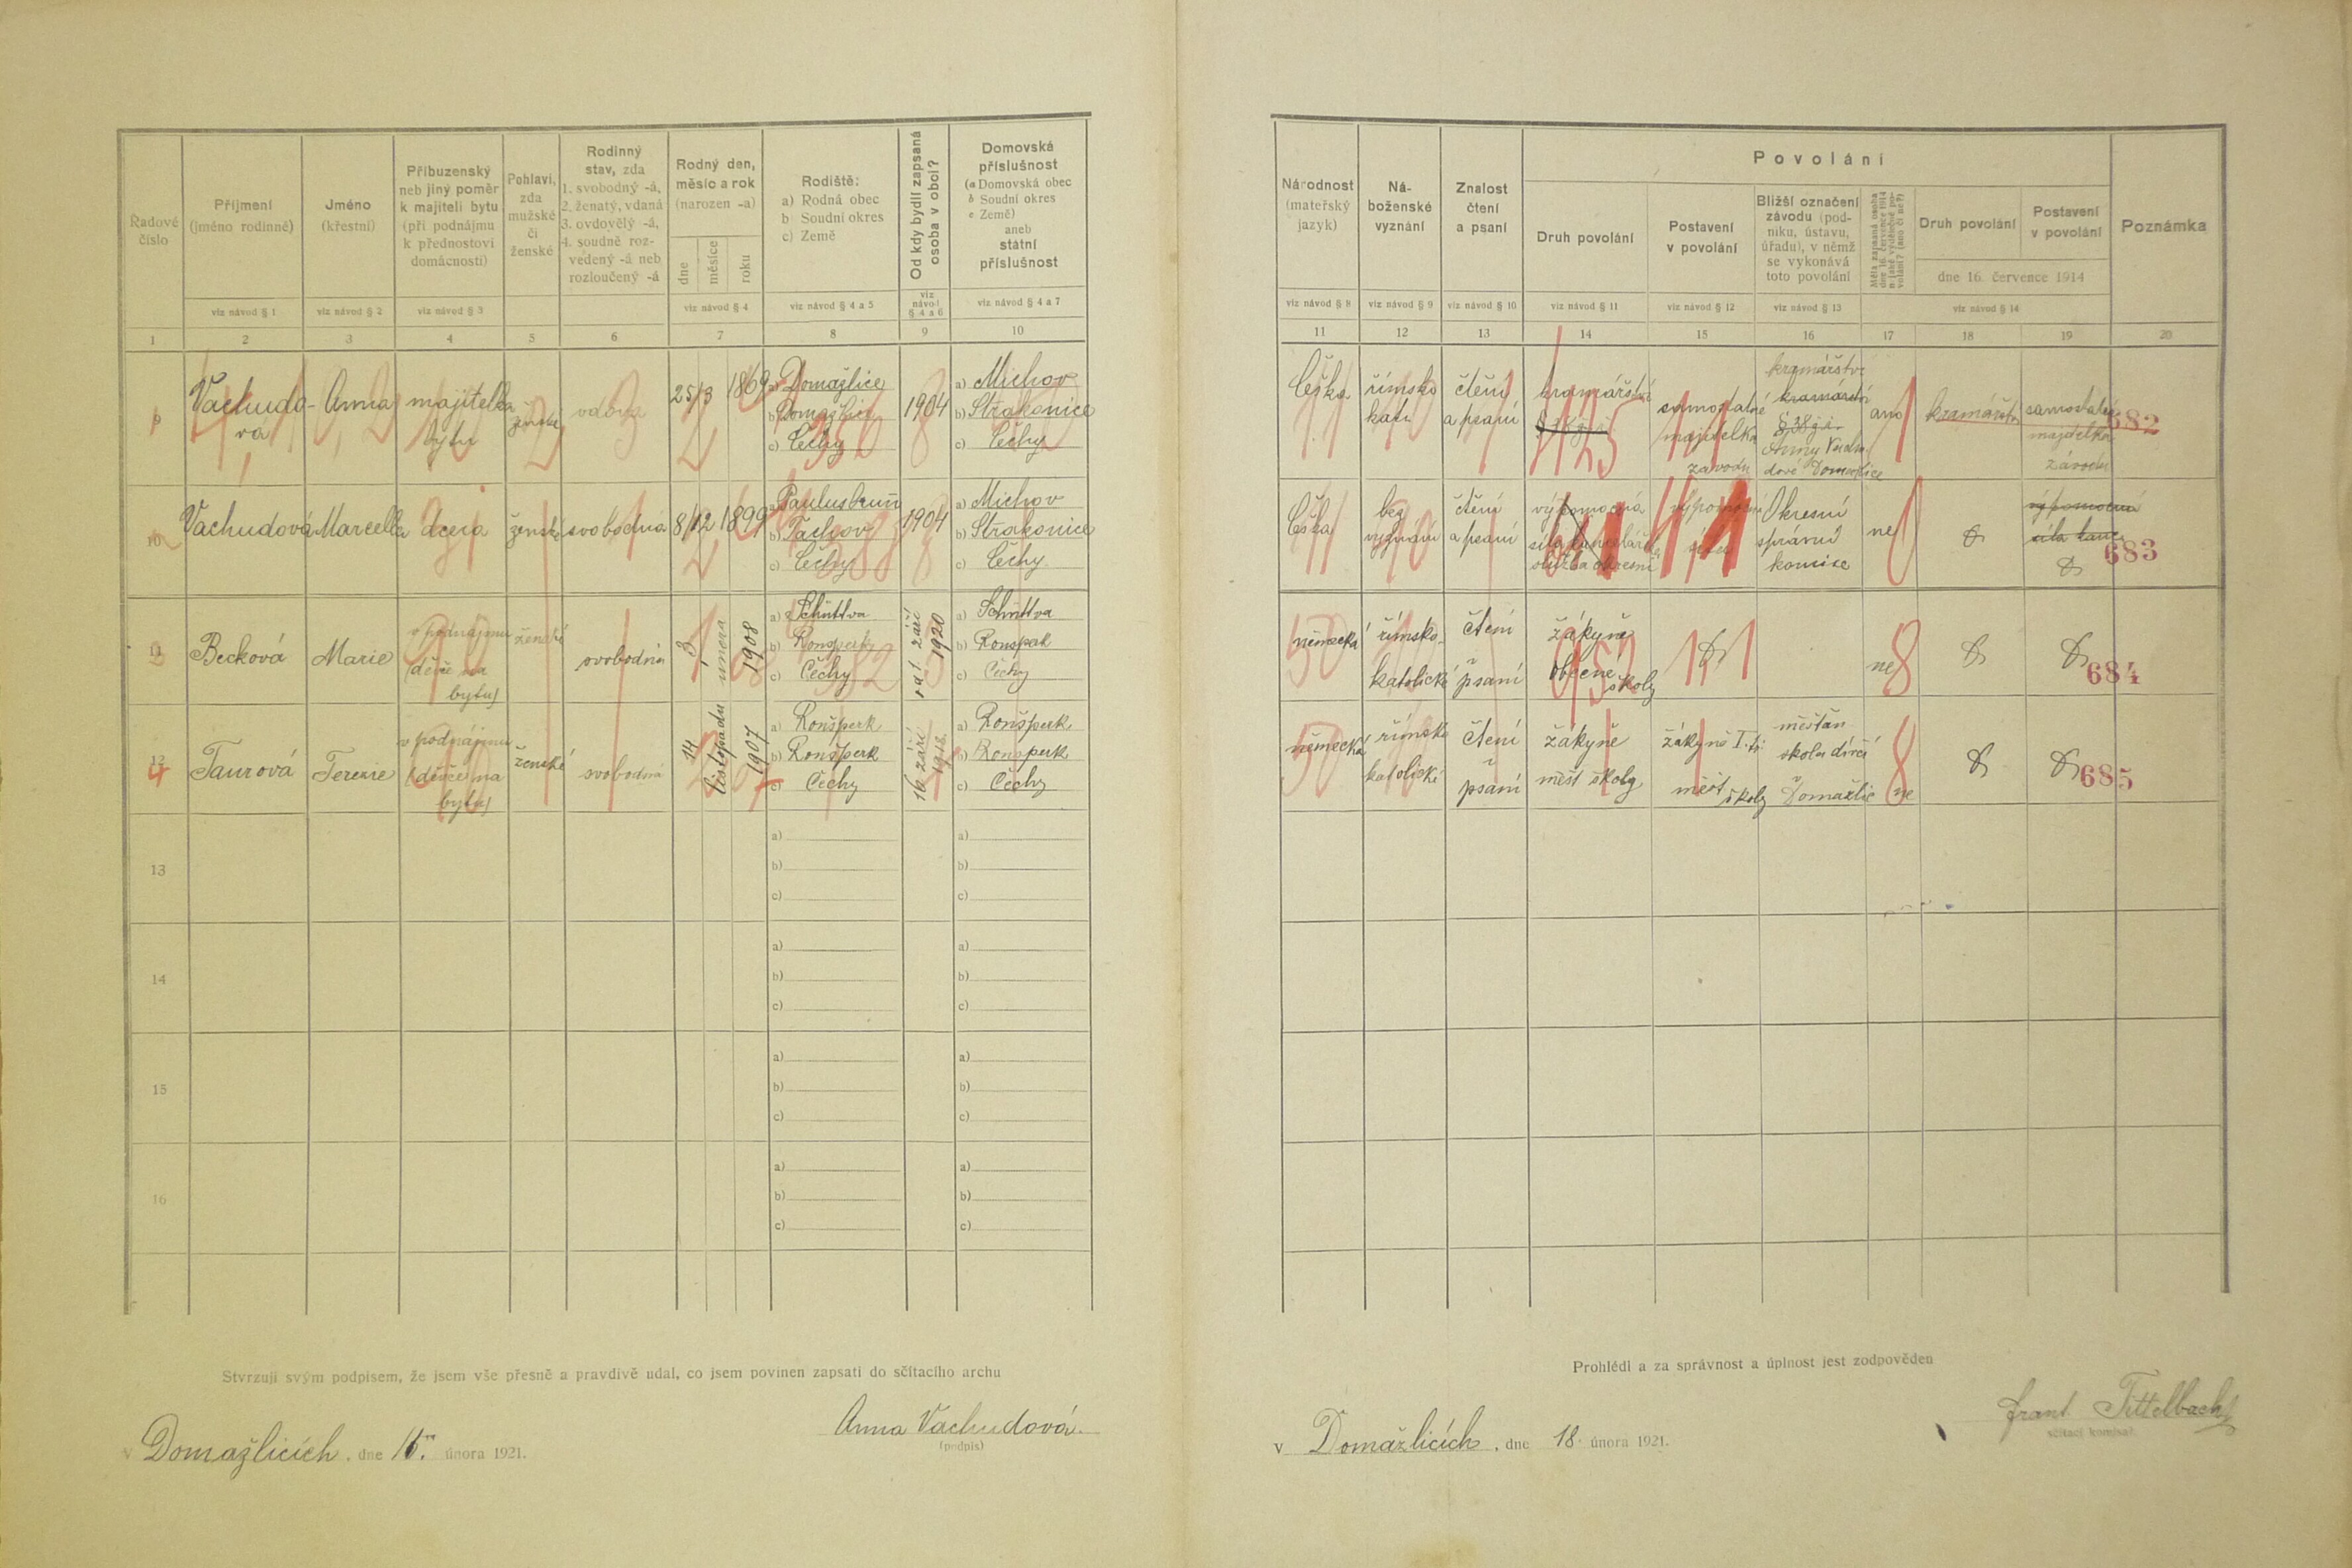 Řadové číslo
Příjmení (jméno rodinné)
Jméno (křestní)
Příbuzenský neb jiný poměr k majiteli bytu (při podnájmu k přednostovi domácnosti)
Pohlaví, zda mužské či ženské
Rodinný stav, zda 1. svobodný -á, 2. ženatý, vdaná 3. ovdovělý -á, 4. soudně rozvedený -á neb rozloučený -á
Rodný den, měsíc a rok (narozen -a)
dne měsíce roku
Rodiště: a) Rodná obec b Soudní okres c) Země
Od kdy bydlí zapsaná osoba v obci?
Domovská příslušnost (a Domovská obec b Soudní okres c Země) aneb státní příslušnost
viz návod § 1
viz návod § 2
viz návod § 3
viz návod § 4
viz návod § 4 a 5
viz návod § 4 a 6
viz návod § 4 a 7
1 2 3 4 5 6 7 8 9 10
Národnost (mateřský jazyk)
Náboženské vyznání
Znalost čtení a psaní
Povolání
Druh povolání
Postavení v povolání
Bližší označení závodu (podniku, ústavu, úřadu), v němž se vykonává toto povolání
Měla zapsaná osoba dne 16. července 1914 nějaké výdělečné povolání? (ano či ne?)
Druh povolání
Postavení v povolání
dne 16. července 1914
Poznámka
viz návod § 8
viz návod § 9
viz návod § 10
viz návod § 11
viz návod § 12
viz návod § 13
viz návod § 14
11 12 13 14 15 16 17 18 19 20
9 Vachudo-vá Anna majitelka bytu ženské vdova 25/3 1869 a) Domažlice b) Domažlice c) Čechy 1904 a) Michov b) Strakonice c) Čechy
Češka římsko kat. čtení a psaní kramářství samostatná majitelka závodu kramářství kramářství § 38 ž. ř. Anny Vachudové Domažlice ano kramářství samostatná majitelka závodu 682
10 Vachudová Marcella dcera ženské svobodná 8/12 1899 a) Paulusbrun b) Tachov c) Čechy 1904 a) Michov b) Strakonice c) Čechy
Češka bez vyznání čtení a psaní výpomocná síla Okresní správní komise ne výpomocná síla kanc. 683
11 Becková Marie v podnájmu (děvče na bytu) ženské svobodná 3 února 1908 a) Schüttva b) Ronsperk c) Čechy od 1 září 1920 a) Schüttva b) Ronsperk c) Čechy
německá římsko-katolické čtení i psaní žákyně obecné školy ne 684
12 Taurová Terezie v podnájmu (děvče na bytu) ženské svobodná 14 listopadu 1907 a) Ronšperk b) Ronšperk c) Čechy 16 září 1918 a) Ronšperk b) Ronsperk c) Čechy
německá římsko katolické čtení i psaní žákyně měšť školy žákyně I. tř. měšť školy měšťan škola dívčí v Domažlic ne 685
13 a) b) c) a) b) c)
14 a) b) c) a) b) c)
15 a) b) c) a) b) c)
16 a) b) c) a) b) c)
Stvrzuji svým podpisem, že jsem vše přesně a pravdivě udal, co jsem povinen zapsati do sčítacího archu
Anna Vachudová
(podpis)
v Domažlicích, dne 16. února 1921.
Prohlédl a za správnost a úplnost jest zodpověden
Frant Tittelbach
sčítací komisař
v Domažlicích, dne 18. února 1921.